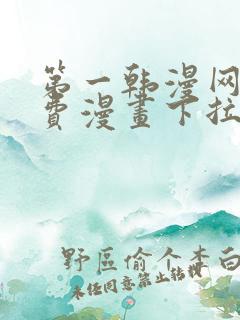 第一韩漫网
费漫畫下拉
野區偷个李白
未经同意禁止转授